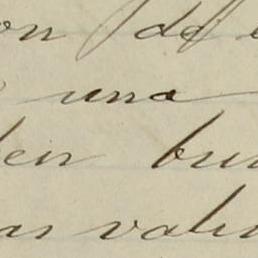 on de
una
en bu
as valu